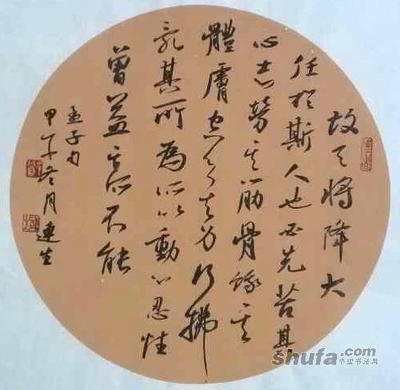 故天將降大
任於斯人也必先苦其
心志勞其筋骨餓其
體膚空乏其身行拂
亂其所為所以動心忍性
曾益其所不能
孟子句
甲午冬月連生
shufa.com